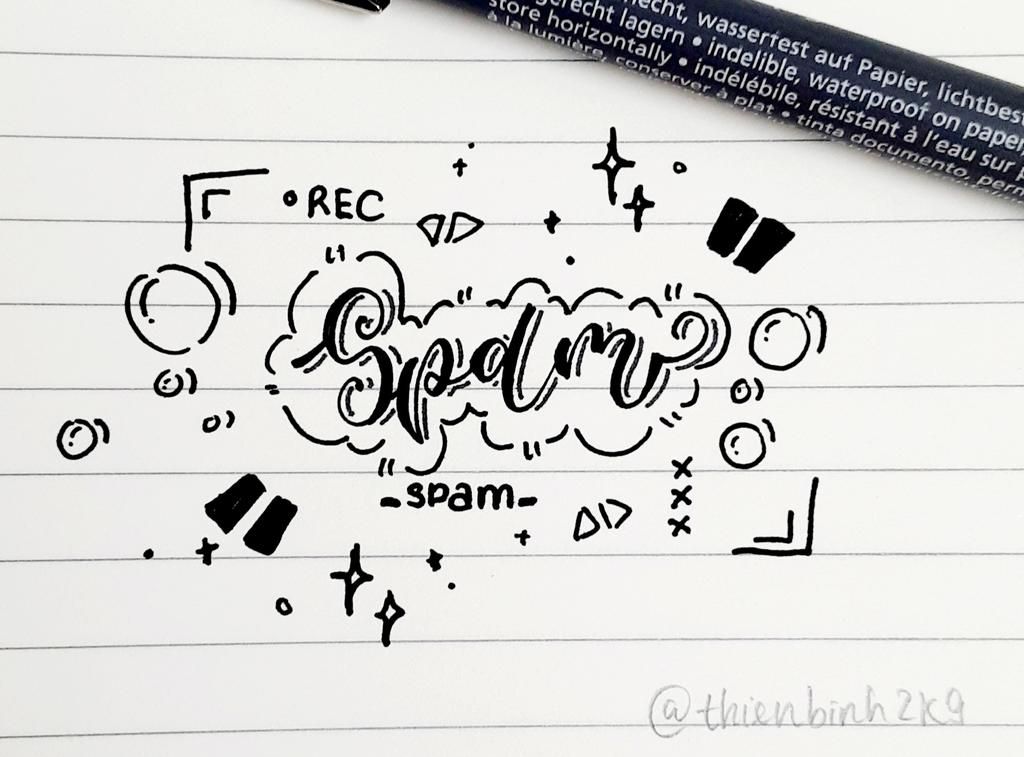 recht, wasserfest auf Papier, lichtbest
gerecht lagern • indelible, waterproof on paper
store horizontally • indélébile, résistant à l'eau sur p
à la lumière, conserver à plat • tinta documento, perm
• REC
Spam
-spam-
x
x
x
@thienbinh2k9